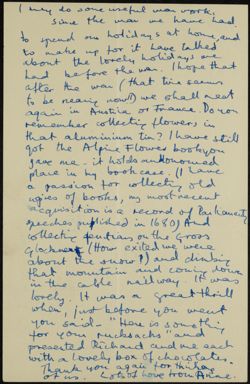 I may do some useful war work.
Since the war we have had
to spend our holidays at home, and
to make up for it have talked
about the lovely holidays we
had before the war. I hope that
after the war (that time seems
to be nearly now!!) we shall meet
again in Austria or France. Do you
remember collecting flowers in
that aluminium tin? I have still
got the Alpine Flower book you
gave me. it holds an honoured
place in my bookcase. (I have
a passion for collecting old
copies of books, my most recent
acquisition is a record of parliamentary
speeches published in 1680) And
collecting on the Gross
Glockner (How excited we were
about the snow!!) and climbing
that mountain and coming down
in the cable railway. It was
lovely. It was a great thrill
when, just before you went
you said "Here is something
for your rucksacks" and
presented Richard and me each
with a lovely box of chocolates.
Thank you again for
of us. Lots of love from Anne.